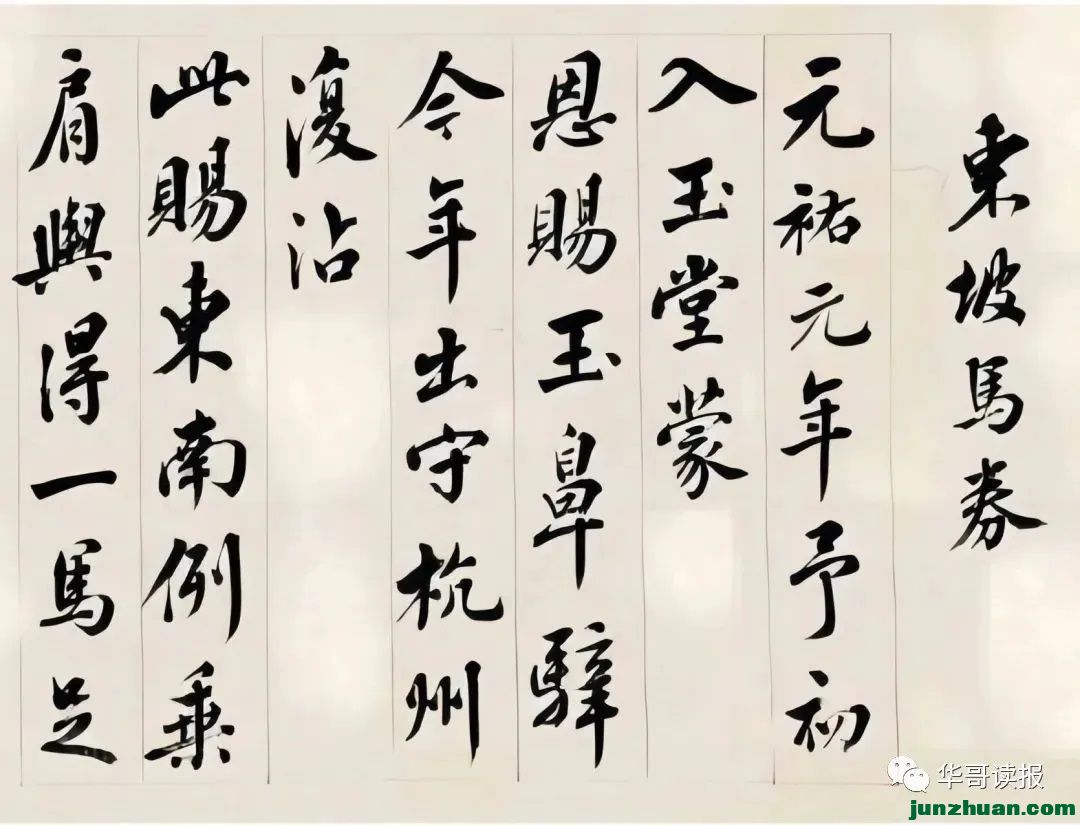 東坡馬券
元祐元年予初
入玉堂蒙
恩賜玉鼻騂
今年出守杭州
復沾
此賜東南例乗
肩輿得一馬足
华哥读报
junzhuan.com